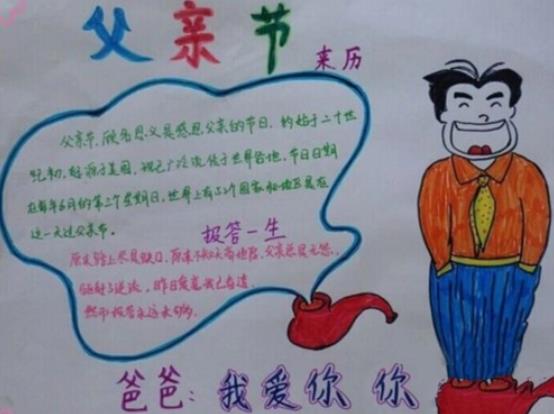 父亲节
来历
父亲节,顾名思义是感恩父亲的节日。约始于二十世
纪初,起源于美国,现已广泛流传于世界各地,节日日期
在每年6月的第三个星期日,世界上有52个国家和地区是在
这一天过父亲节。
报答一生
父亲总是无怨
昨日
然而报答永远太够
爸爸:我爱你 你